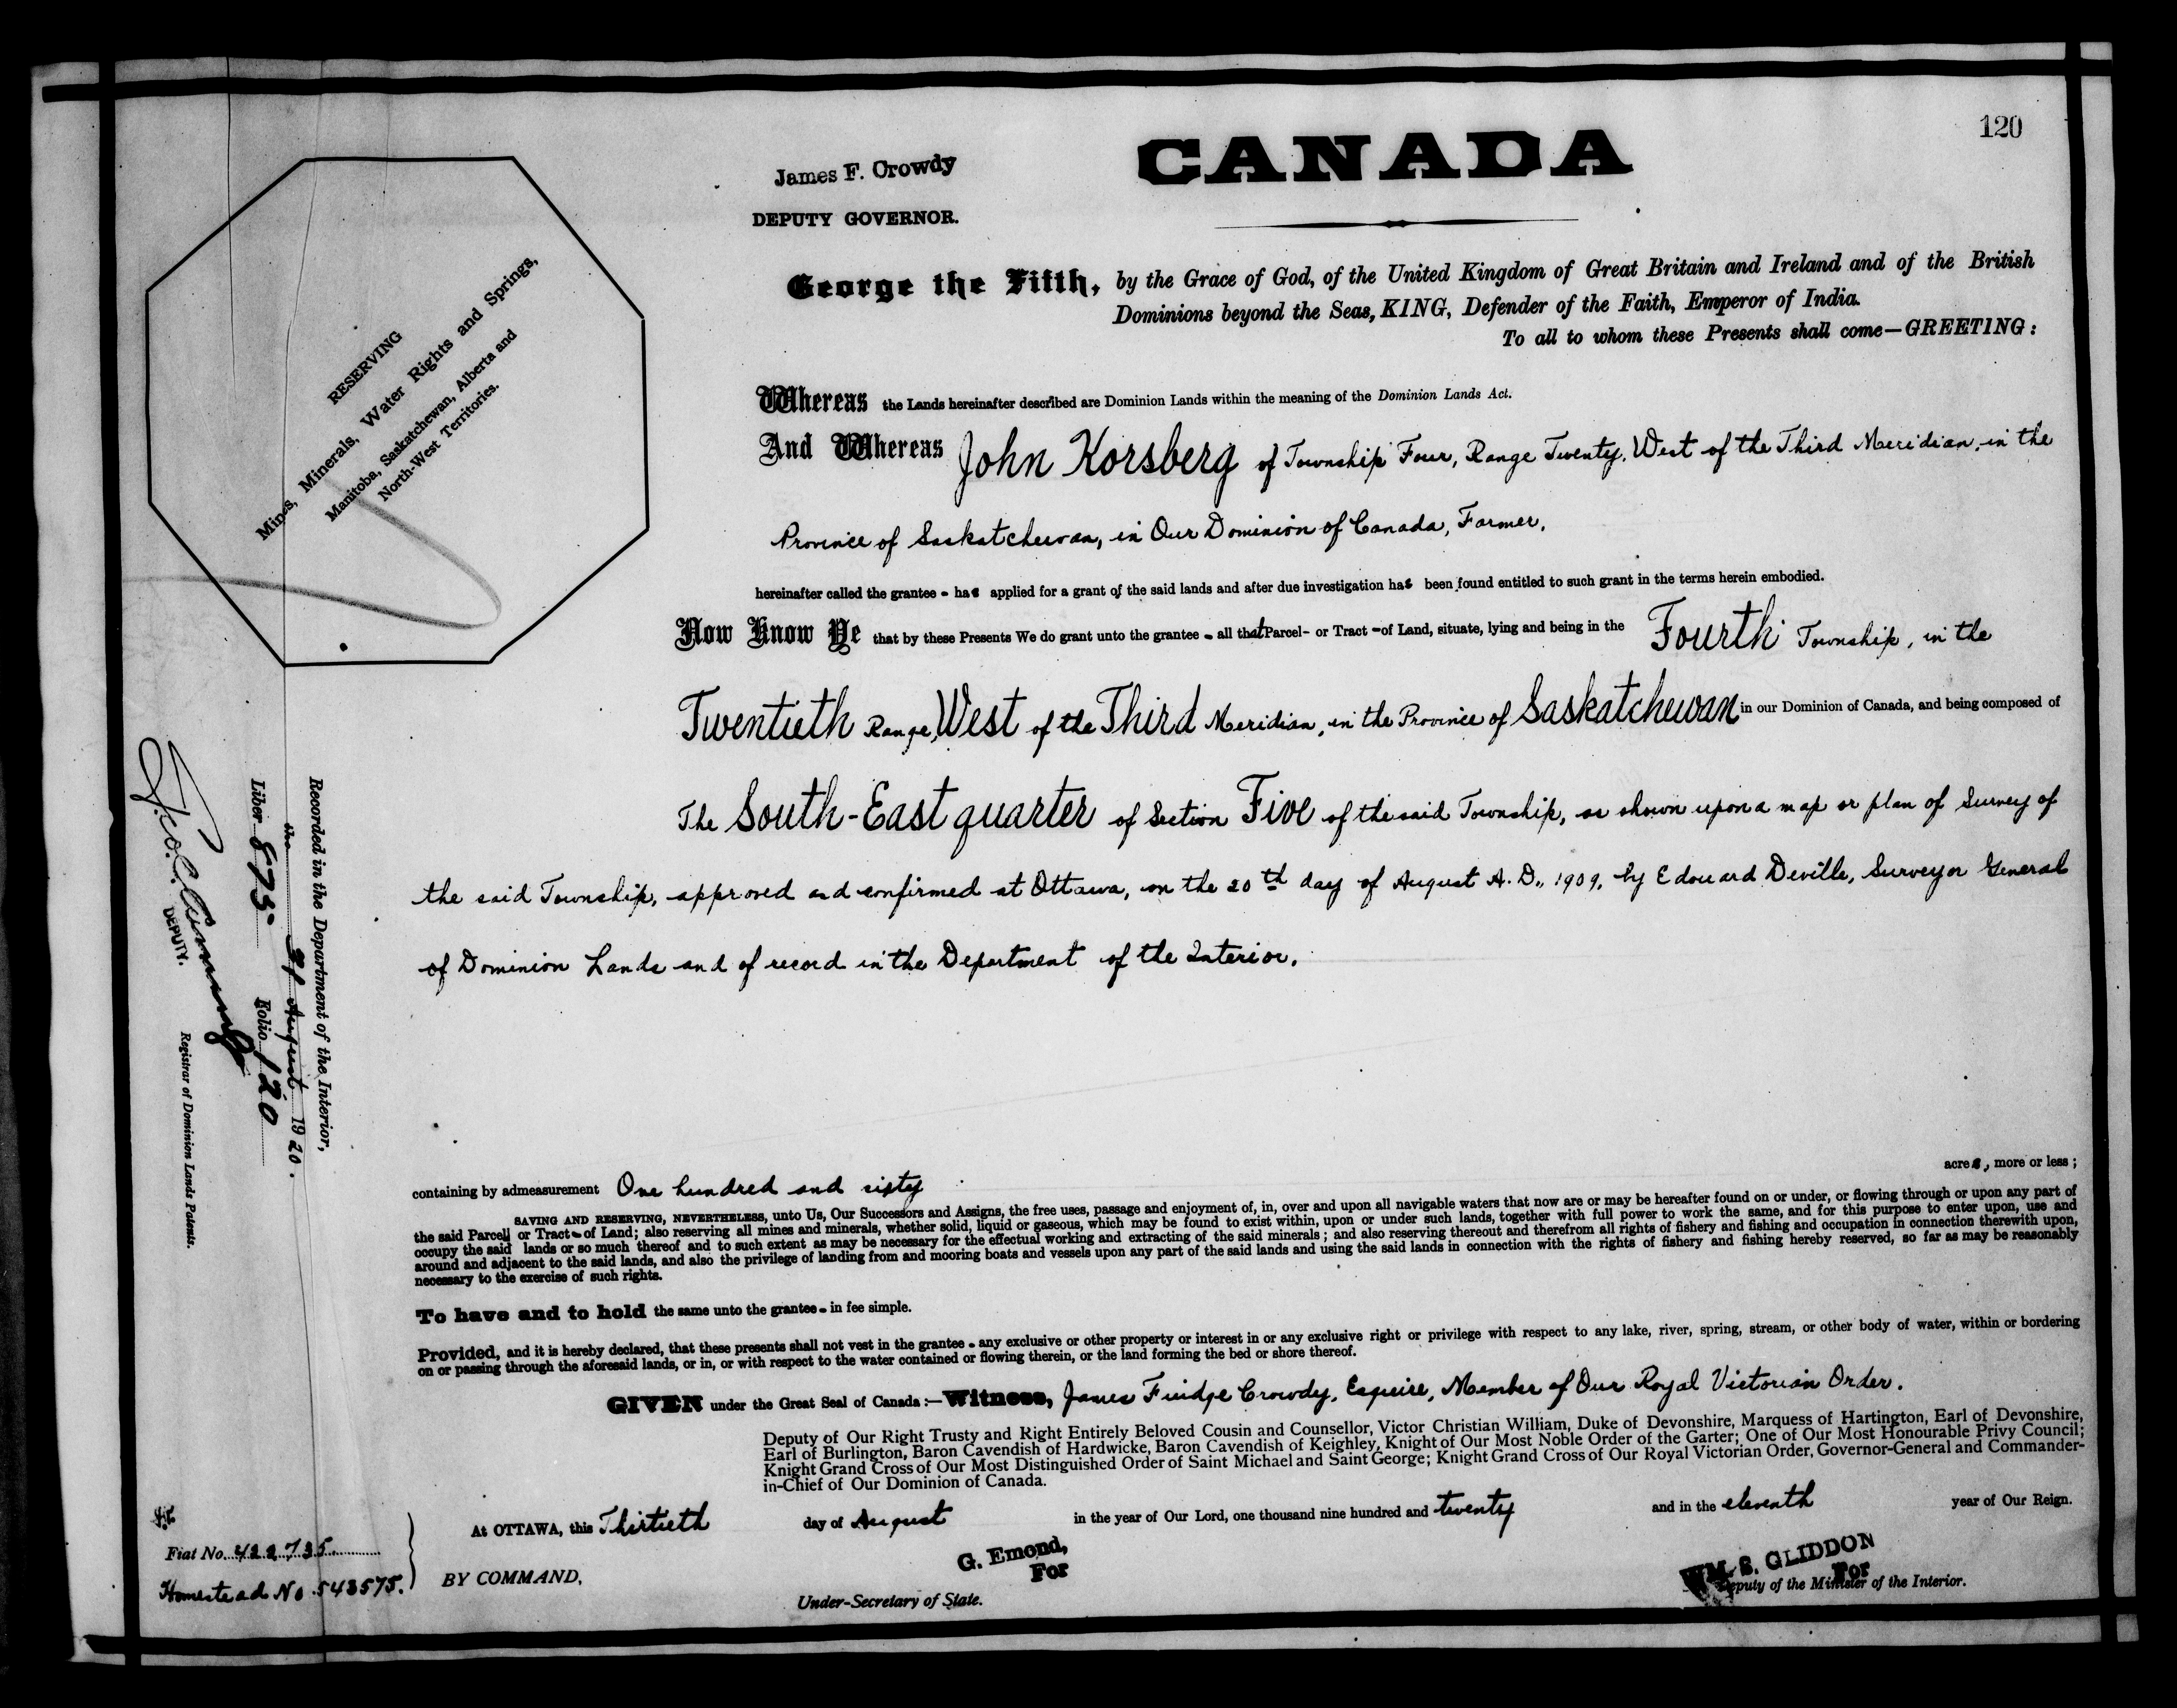 120
CANADA
James F. Crowdy
DEPUTY GOVERNOR.
George the Fifth, by the Grace of God, of the United Kingdom of Great Britain and Ireland and of the British
Dominions beyond the Seas, KING, Defender of the Faith, Emperor of India.
To all to whom these Presents shall come—GREETING:
RESERVING
Mines, Minerals, Water Rights and Springs,
Manitoba, Saskatchewan, Alberta and
North-West Territories.
Whereas the Lands hereinafter described are Dominion Lands within the meaning of the Dominion Lands Act.
And Whereas John Korsberg of Township Four, Range Twenty, West of the Third Meridian, in the
Province of Saskatchewan, in Our Dominion of Canada, Farmer,
hereinafter called the grantee - has applied for a grant of the said lands and after due investigation has been found entitled to such grant in the terms herein embodied.
Now Know Ye that by these Presents We do grant unto the grantee - all that Parcel - or Tract - of Land, situate, lying and being in the Fourth Township, in the
Twentieth Range, West of the Third Meridian, in the Province of Saskatchewan in our Dominion of Canada, and being composed of
The South-East quarter of Section Five of the said Township, as shown upon a map or plan of Survey of
the said Township, approved and confirmed at Ottawa, on the 20th day of August A.D., 1909, by Edouard Deville, Surveyor General
of Dominion Lands and of record in the Department of the Interior.
Recorded in the Department of the Interior,
the 31 August 1920.
Liber 875 Folio 120
DEPUTY.
Registrar of Dominion Lands Patents.
containing by admeasurement One hundred and sixty acres, more or less;
SAVING AND RESERVING, NEVERTHELESS, unto Us, Our Successors and Assigns, the free uses, passage and enjoyment of, in, over and upon all navigable waters that now are or may be hereafter found on or under, or flowing through or upon any part of
the said Parcel or Tract - of Land; also reserving all mines and minerals, whether solid, liquid or gaseous, which may be found to exist within, upon or under such lands, together with full power to work the same, and for this purpose to enter upon, use and
occupy the said lands or so much thereof and to such extent as may be necessary for the effectual working and extracting of the said minerals; and also reserving thereout and therefrom all rights of fishery and fishing and occupation in connection therewith upon,
around and adjacent to the said lands, and also the privilege of landing from and mooring boats and vessels upon any part of the said lands and using the said lands in connection with the rights of fishery and fishing hereby reserved, so far as may be reasonably
necessary to the exercise of such rights.
To have and to hold the same unto the grantee - in fee simple.
Provided, and it is hereby declared, that these presents shall not vest in the grantee - any exclusive or other property or interest in or any exclusive right or privilege with respect to any lake, river, spring, stream, or other body of water, within or bordering
on or passing through the aforesaid lands, or in, or with respect to the water contained or flowing therein, or the land forming the bed or shore thereof.
GIVEN under the Great Seal of Canada:—Witness, James Fuidge Crowdy, Esquire, Member of Our Royal Victorian Order.
Deputy of Our Right Trusty and Right Entirely Beloved Cousin and Counsellor, Victor Christian William, Duke of Devonshire, Marquess of Hartington, Earl of Devonshire,
Earl of Burlington, Baron Cavendish of Hardwicke, Baron Cavendish of Keighley, Knight of Our Most Noble Order of the Garter; One of Our Most Honourable Privy Council;
Knight Grand Cross of Our Most Distinguished Order of Saint Michael and Saint George; Knight Grand Cross of Our Royal Victorian Order, Governor-General and Commander-
in-Chief of Our Dominion of Canada.
At OTTAWA, this Thirtieth day of August in the year of Our Lord, one thousand nine hundred and twenty and in the eleventh year of Our Reign.
Fiat No. 422735
Homestead No 543575.
BY COMMAND,
G. Emond,
For
Under-Secretary of State.
WM. S. GLIDDON
For
Deputy of the Minister of the Interior.